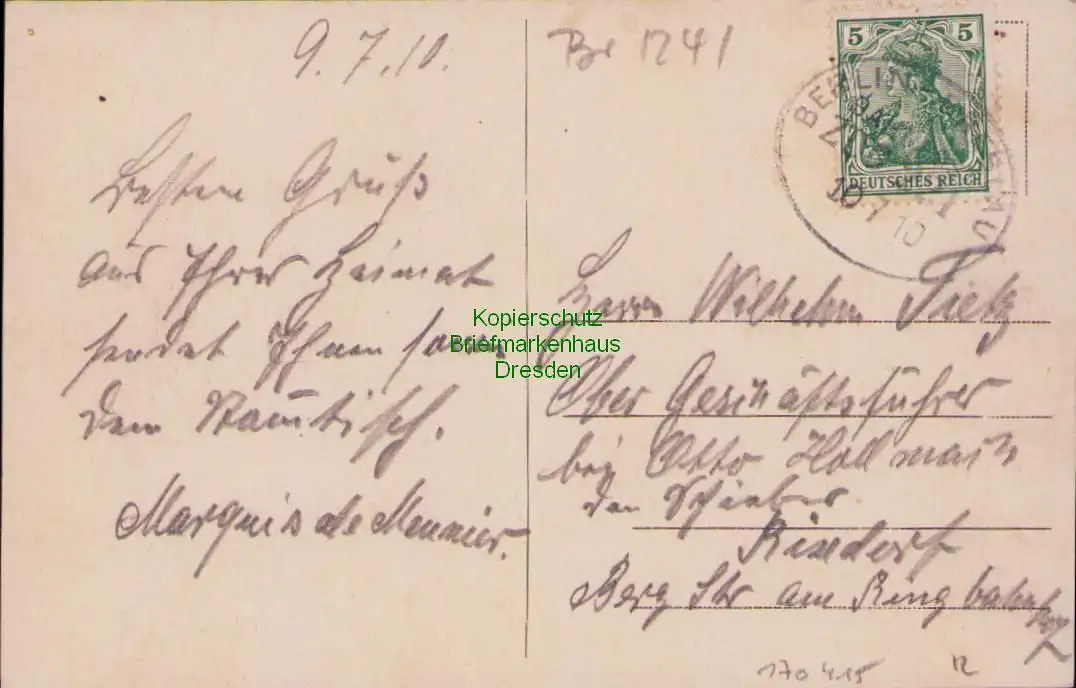 9.7.10.
Besten Gruß
aus Ihrer Heimat
sendet Ihnen sowie
dem Stamtisch.
Marquis de Meunier.
Br 1241
5 5
DEUTSCHES REICH
BERLIN
ZUG
10 7 10
Herrn Wilhelm Tietz
Ober Geschäftsführer
bei Otto
den Schieber
Rixdorf
Berg Str am Ring bahnhof
170 415
12
Kopierschutz
Briefmarkenhaus
Dresden